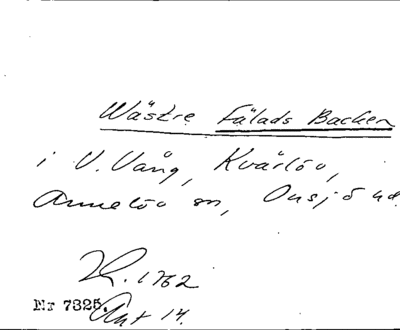 Wästre Fälads Backen
i V. Vång, Kvärlöv,
Annelöv sn, Onsjö hd.
LR. 1762
Nr 7325. Akt 14.